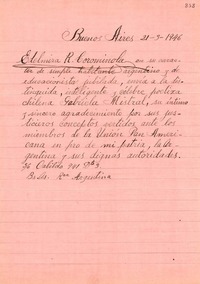 Buenos Aires 21-3-1946
Edelmira R. Corominola en su carac-
ter de simple habitante argentina y de
educacionista jubilada, envía a la dis-
tinguida, inteligente y célebre poetisa
chilena Gabriela Mistral, su íntimo
y sincero agradecimiento por sus jus-
ticieros conceptos vertidos ante los
miembros de la Unión Pan Ameri-
cana en pro de mi patria, la Ar-
gentina y sus dignas autoridades.
Bs. As. Rca Argentina